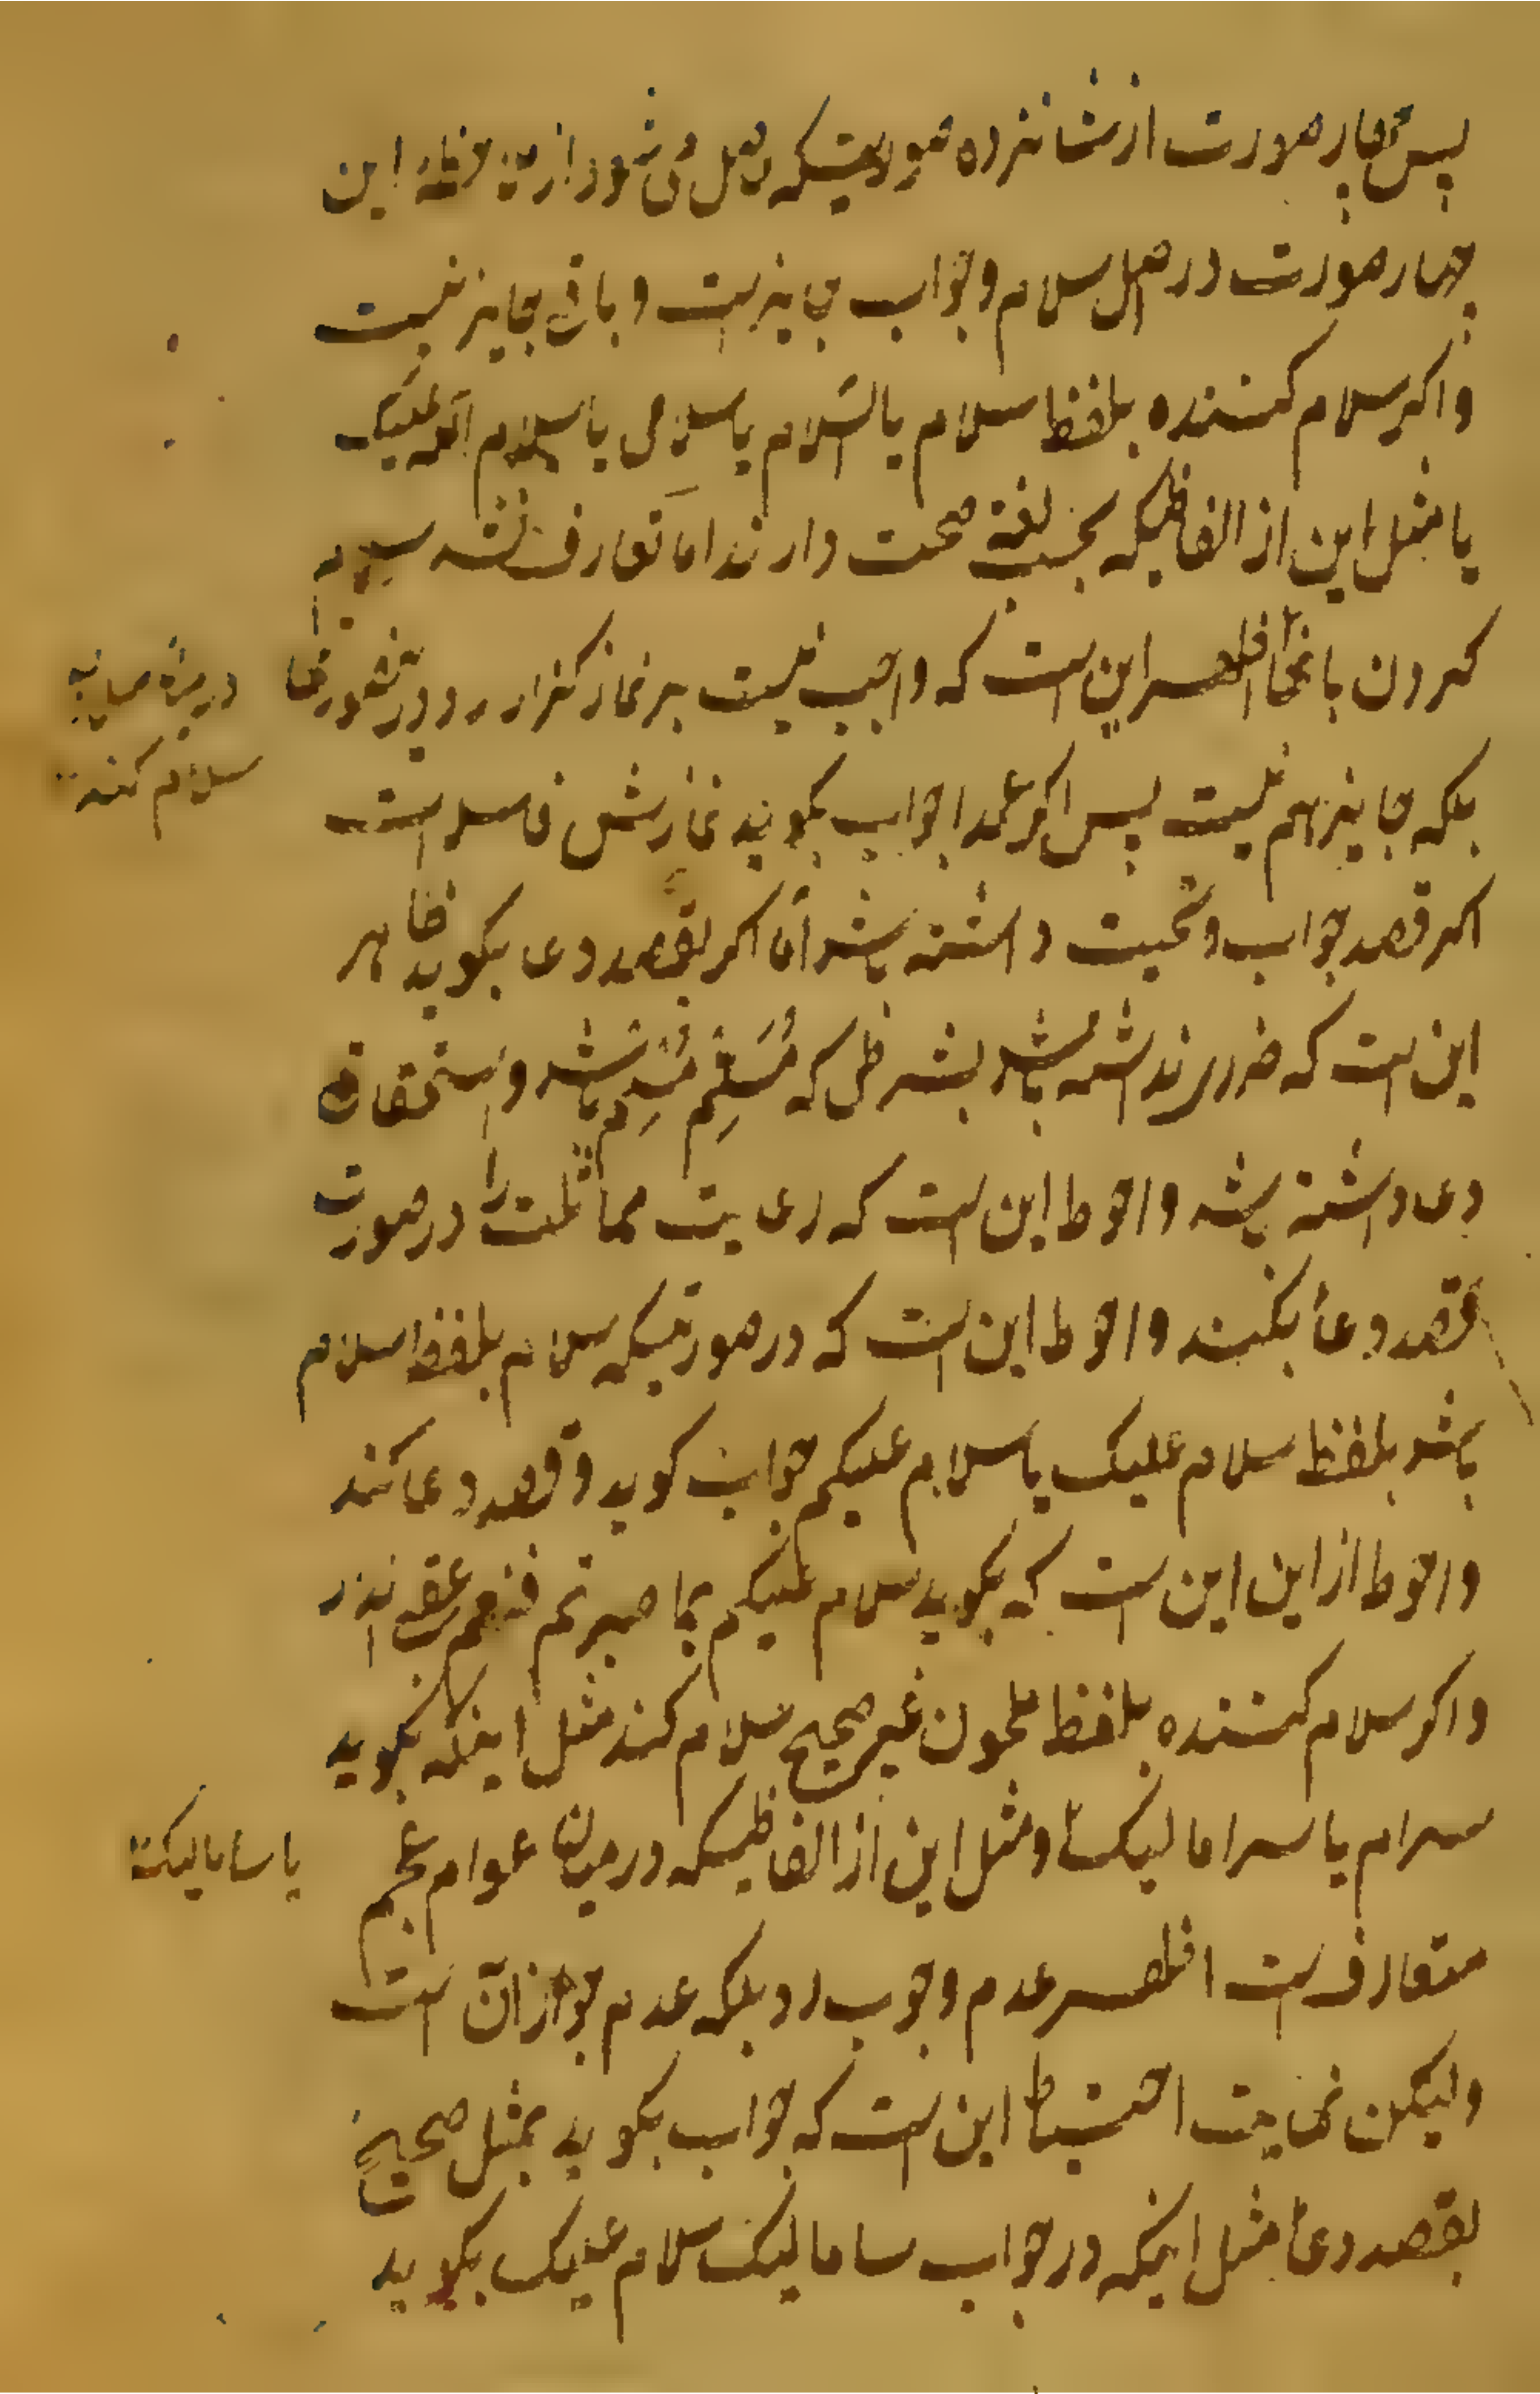 پس چهار صورت از شانزده صورتیکه حاصل می شود از ملاحظهٔ این
چهار صورت در اصل سلام و جواب جایز است و باقی جایز نیست
و اکر سلام کننده بلفظ سلام یا السّلام یا سلامی یا سلام اللّه علیک
یا مثل این از الفاظیکه بحسب لغة صحت دارند امّا تعارف نشده سلام
کردن بانها اظهر این است که واجب نیست بر نماز کزار رد در نصورتها
در میانه
سلام کننده
بلکه جایز هم نیست پس اکر عمدا جواب بکوید نمازش فاسد است
اکر قصد جواب و تحیت داشته باشد امّا اکر بقصد دعا بکوید ظاهر
این است که ضرر نداشته باشد بشرطی که مُسَلِّم مُسلِم باشد و استحقاق
دعا داشته باشد و احوط این است که رعایت مماثلت را در صورت
قصد دعا بکند و احوط این است که در صورتیکه سلام بلفظ سلام
باشد بلفظ سلام علیک یا سلام علیکم جواب کوید و قصد دعا کند
و احوط از این این است که بکوید سلام علیکم بما صبرتم فنعم عقبی الدار
و اکر سلام کننده بلفظ ملحون غیر صحیح سلام کند مثل اینکه بکوید
سرام یا سراما لیک و مثل این از الفاظیکه در میان عوام عجم
یا ساما لیک
متعارف است اظهر عدم وجوب رد بلکه عدم جواز آن است
ولیکن نهایت احتیاط این است که جواب بکوید بمثل صحیح
بقصد دعا مثل اینکه در جواب ساما لیک سلام علیک بکوید